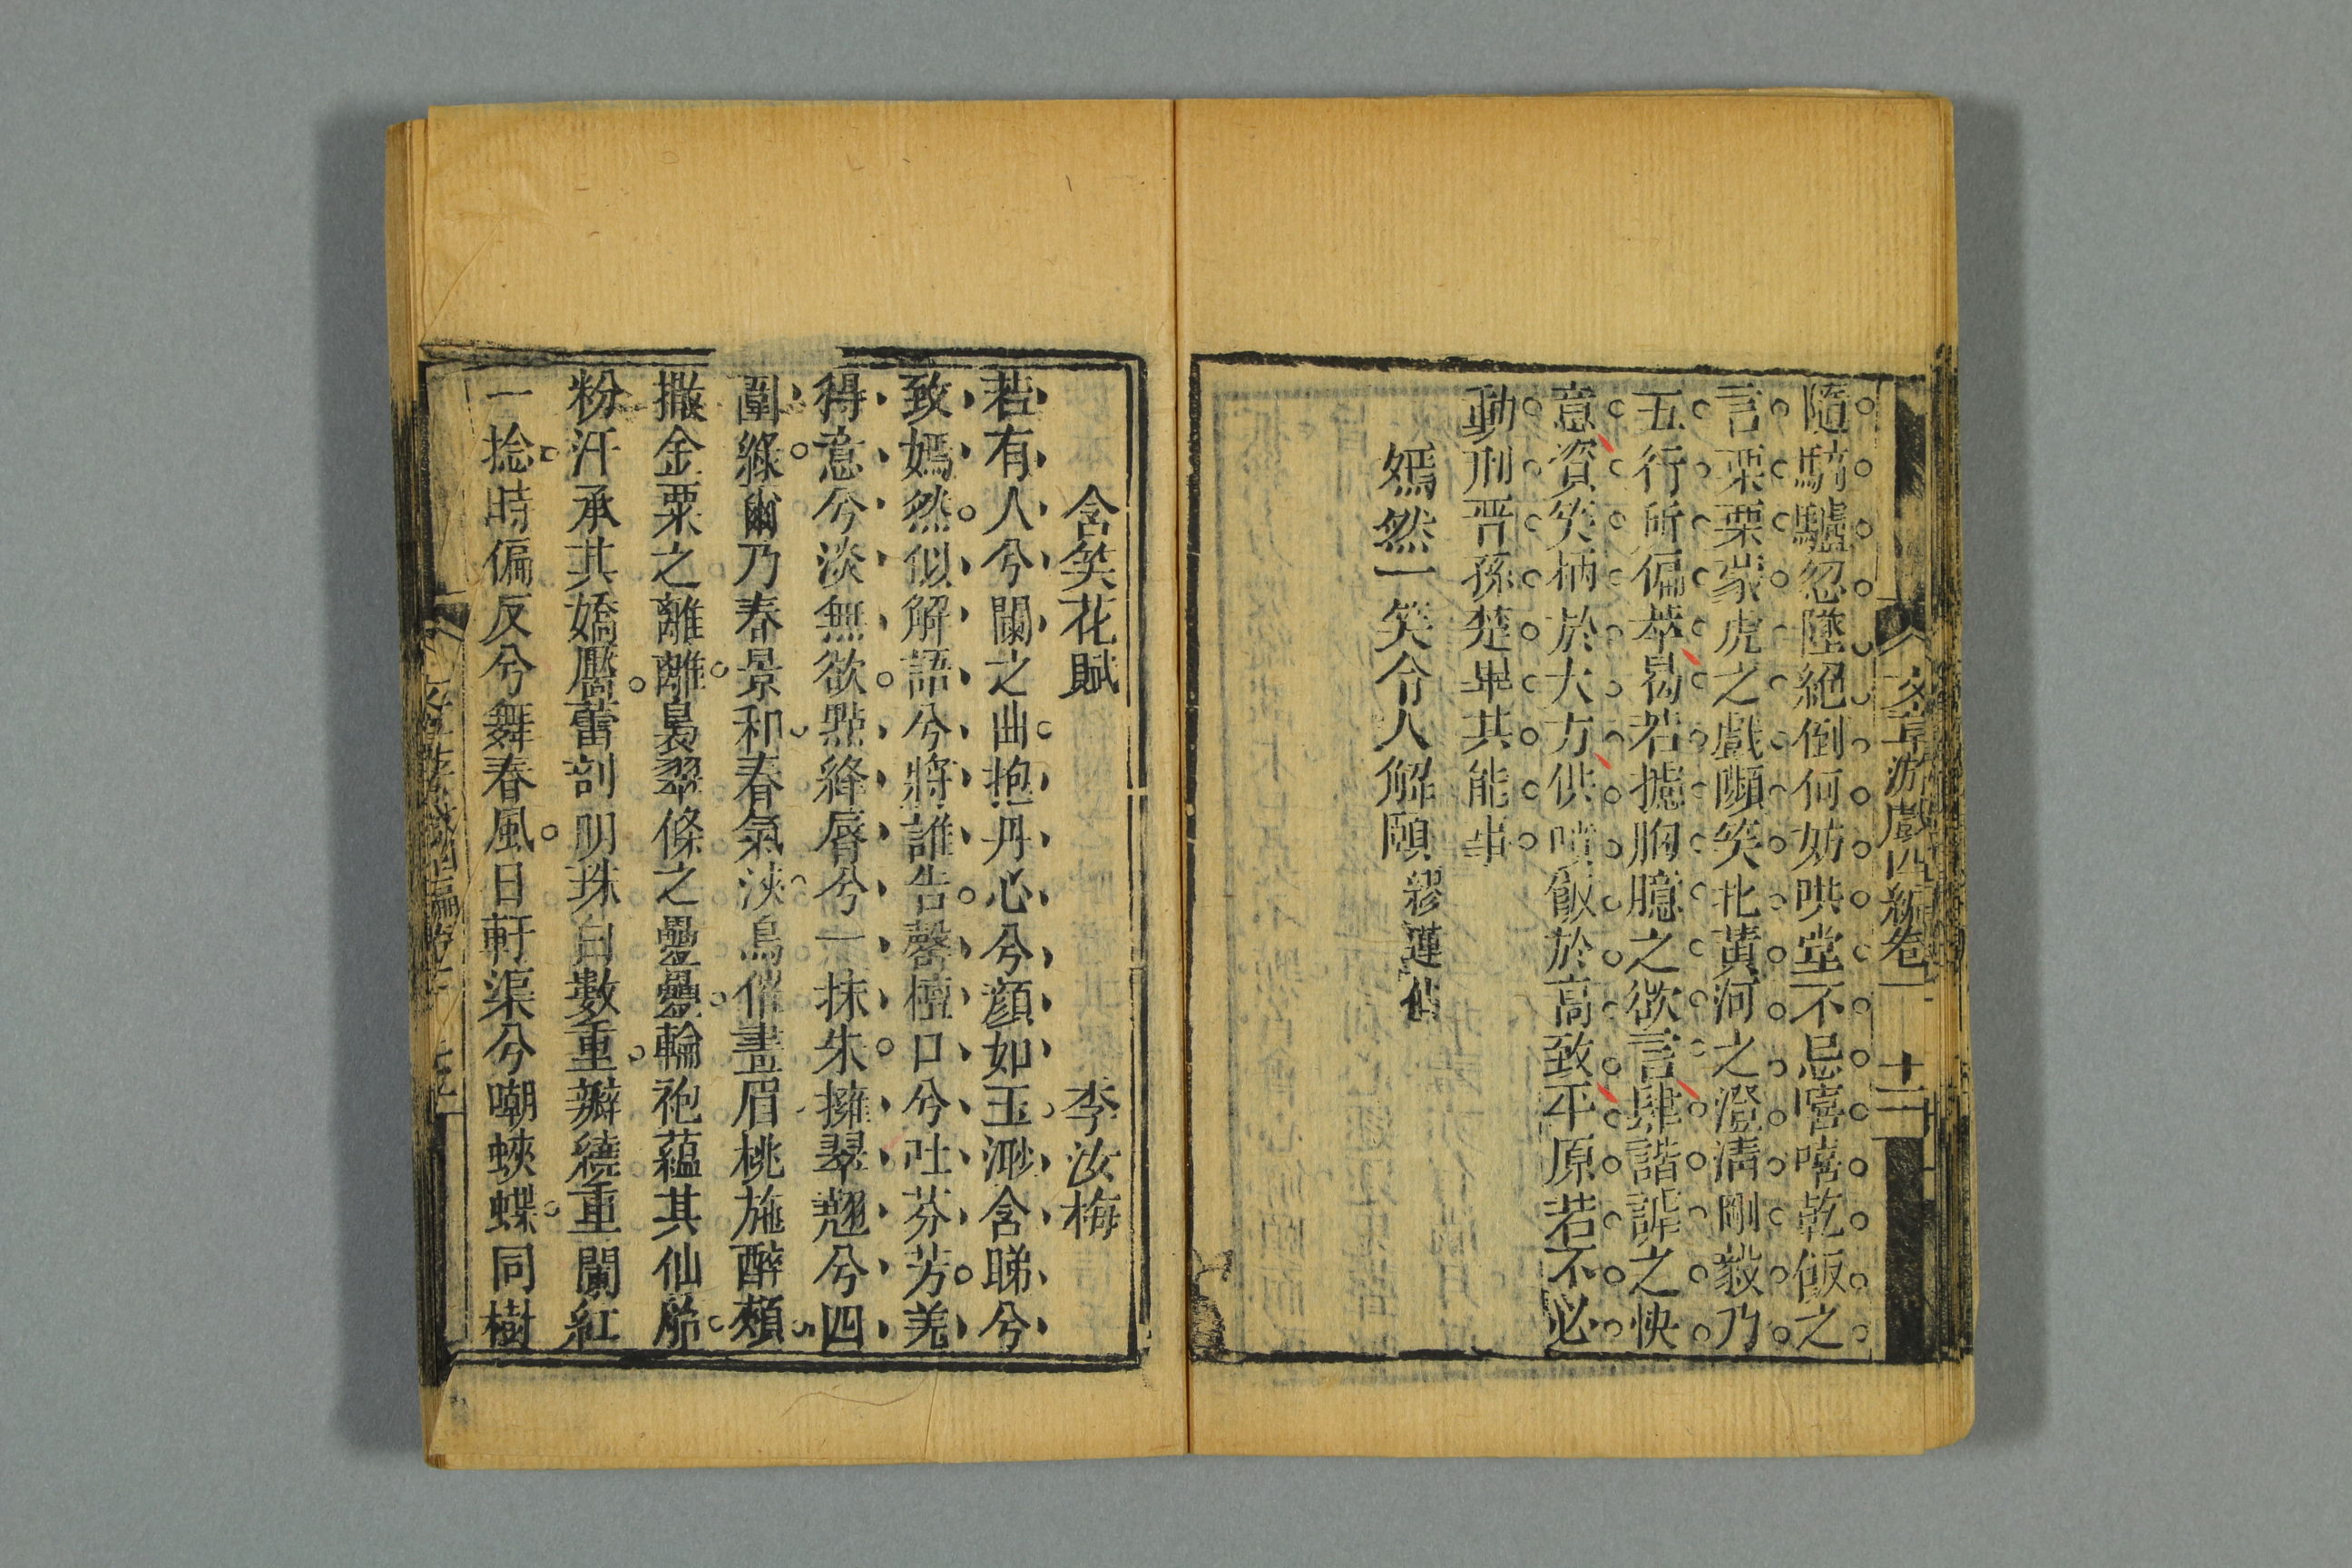 文章游戲四編卷一 十二
隨騎驢忽墜絕倒何妨哄堂不忌嘻嘻乾飯之
言栗栗蒙虎之戲囅笑北黃河之澄清剛毅乃
五行所偏萃曷若攄胸臆之欲言肆諧謔之快
意資笑柄於大方供噴飯於高致平原若不必
動刑晉孫楚畢其能事
嫣然一笑令人解頤繆蓮仙
含笑花賦 李汝梅
若有人兮闌之曲抱丹心兮顏如玉渺含睇兮
致嫣然似解語兮將誰告馨檀口兮吐芬芳羌
得意兮淡無欲點絳脣兮一抹朱擁翠翹兮四
圍綠爾乃春景和春氣浹鳥催畫眉桃施醉頰
撒金粟之離離裊翠條之疊疊輪袍蘊其仙胎
粉汗承其嬌靨蕾剖明珠白數重瓣繞重闌紅
一捻時偏反兮舞春風日軒渠兮嘲蛺蝶同樹